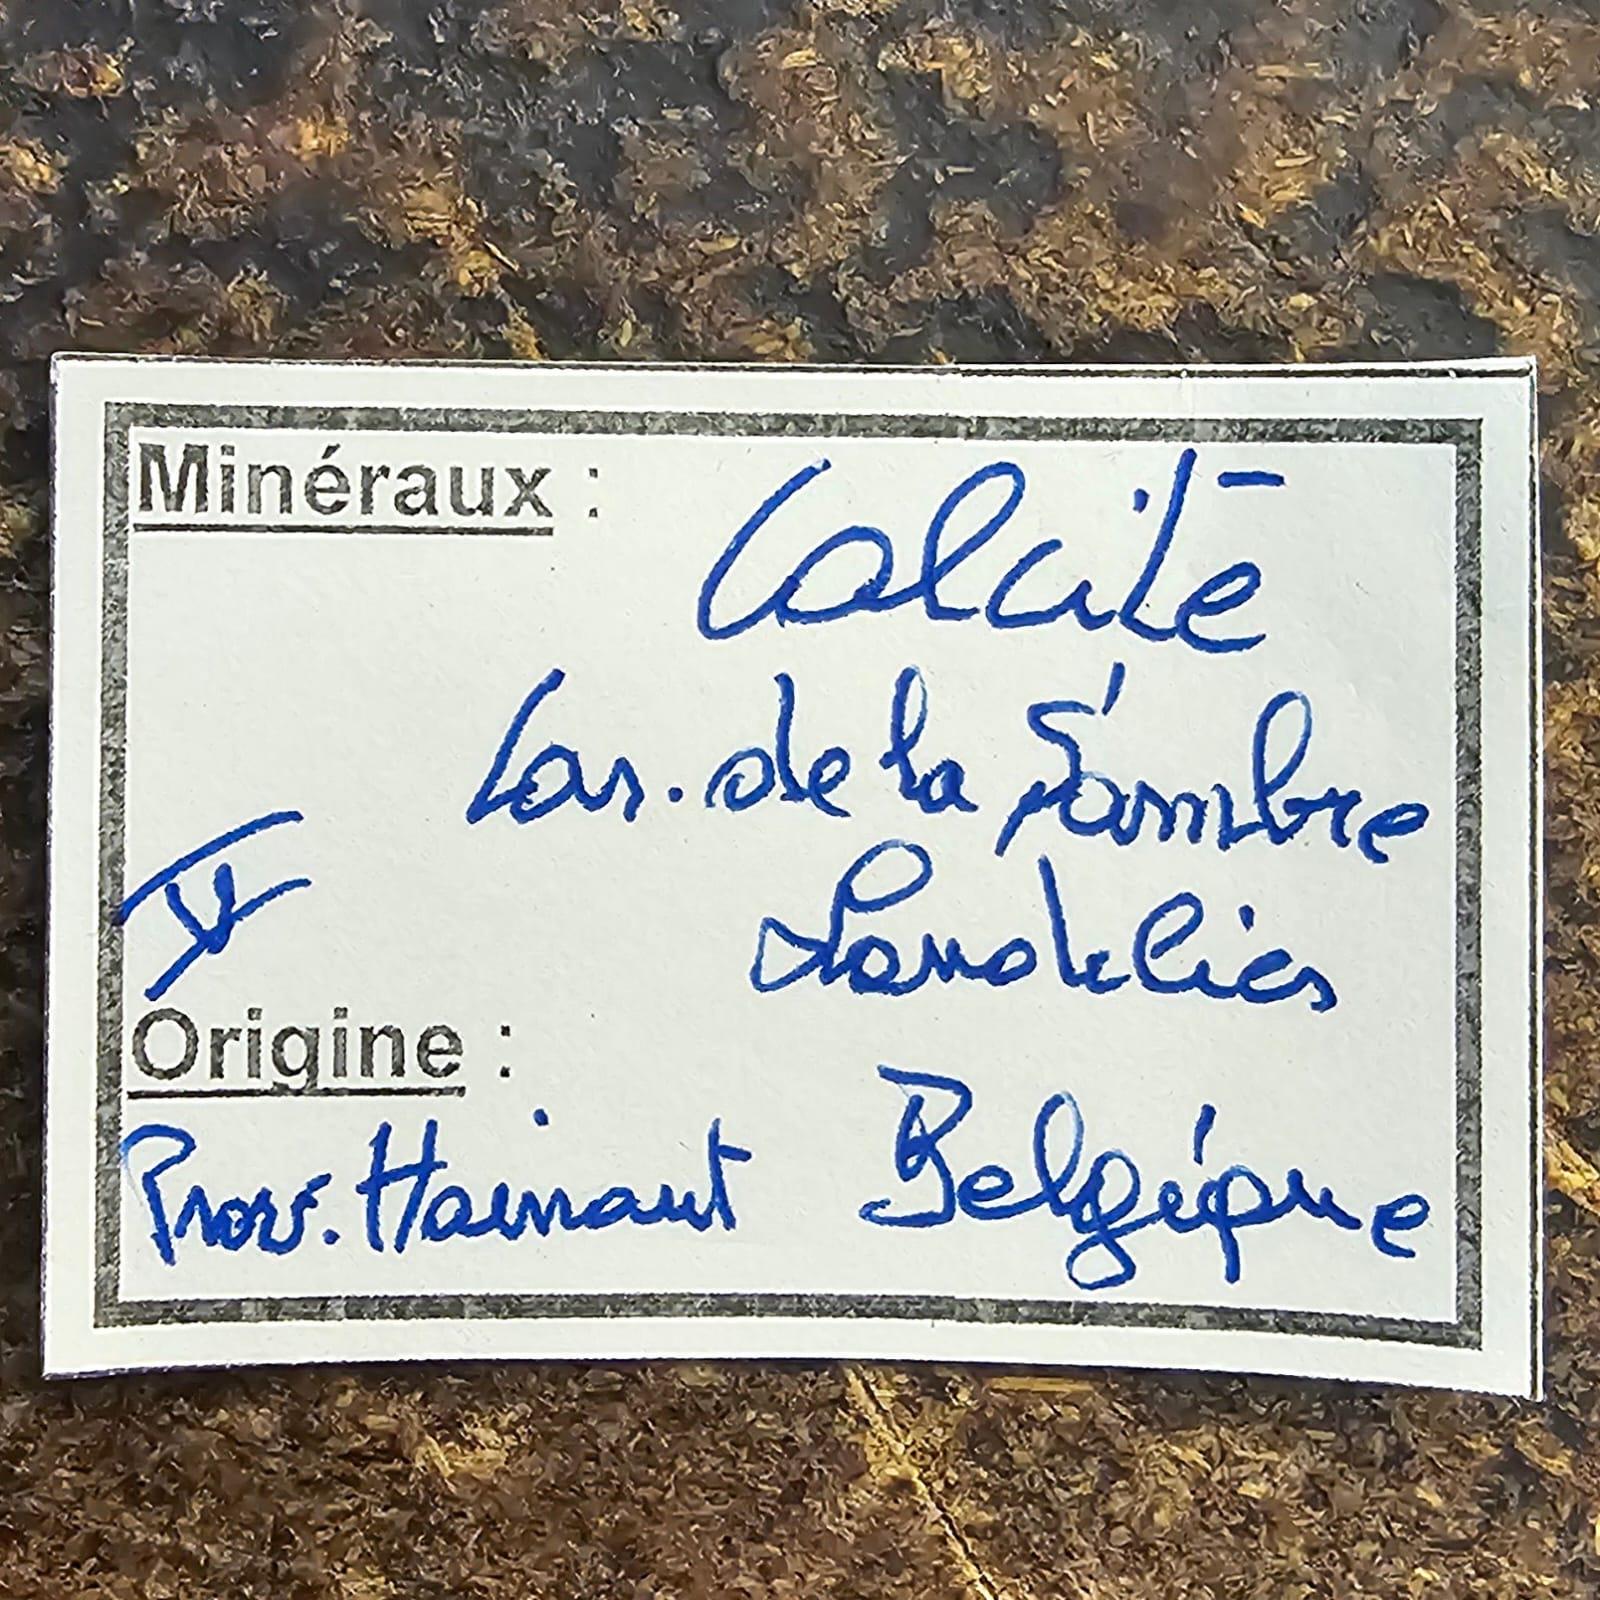 Minéraux : Calcite
Car. de la Sambre
Landelies
Origine :
Prov. Hainaut Belgique